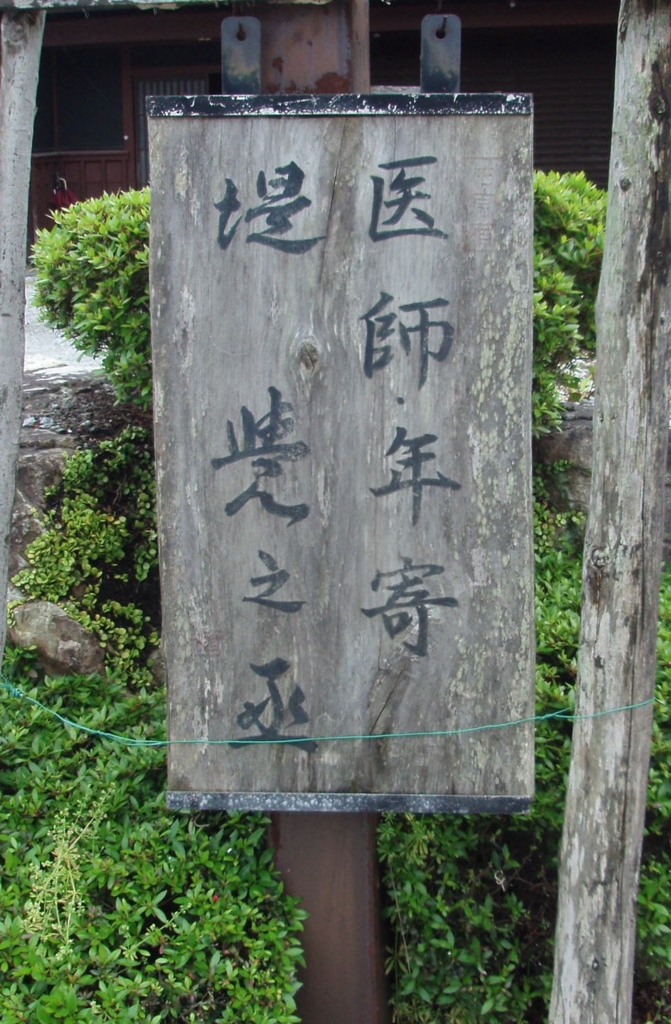 医師・年寄
堤覺之丞